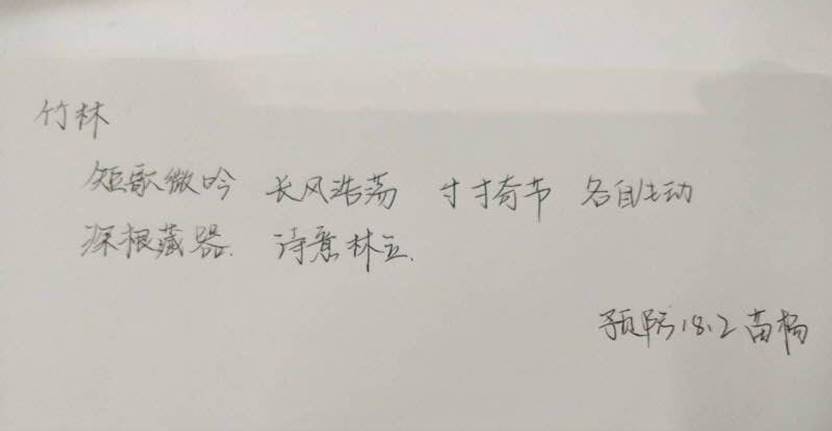 竹林
短歌微吟 长风浩荡 寸寸奇节 各自生动
深根藏器. 诗意林立.
预防18.2 苗杨